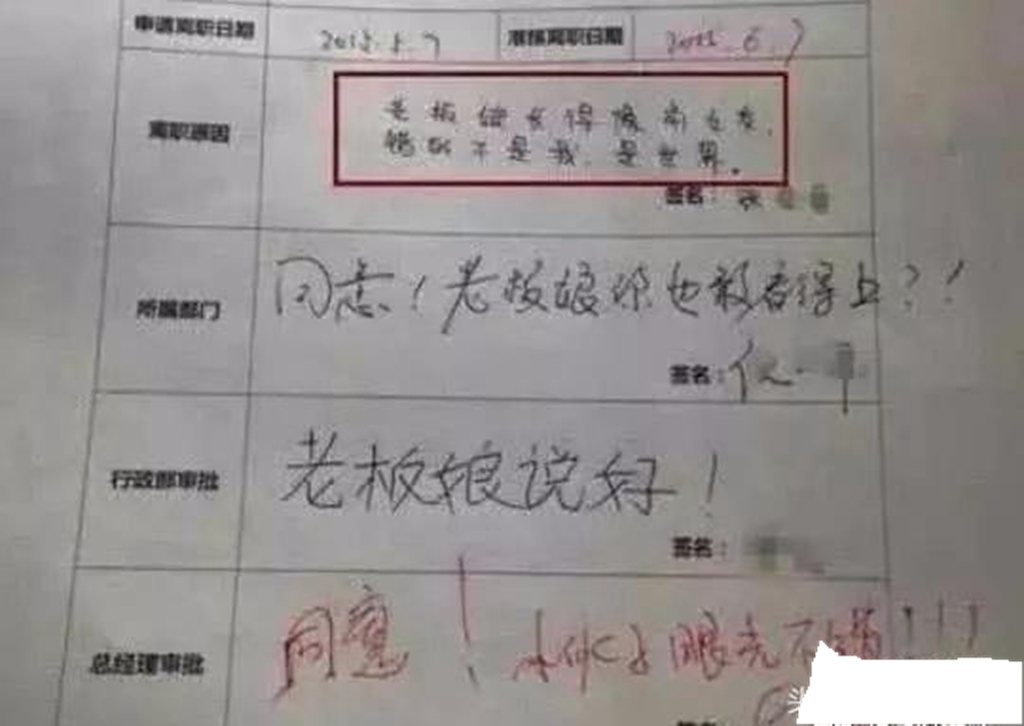 申请离职日期 2015.5.7 准核离职日期 2015.6.7
离职原因
老板娘长得像前女友,
错的不是我,是世界。
签名: 张
所属部门
同意!老板娘你也敢看得上?!
签名:
行政部审批
老板娘说好!
签名:
总经理审批
同意! 小伙子眼光不错!!!
签名